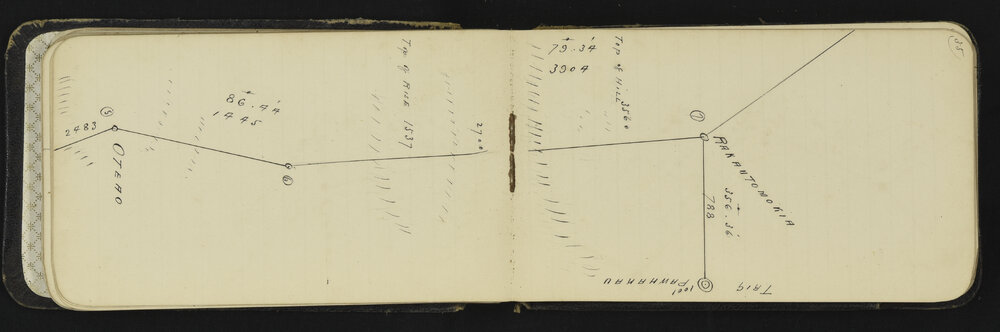 35
2483
5
OTEAO
86.44
1445
6
Top of Rise 1537
2700
79.34
3904
Top of Hill 3560
7
RAKAUTOMOKIA
356.36
788
TRIG
1001